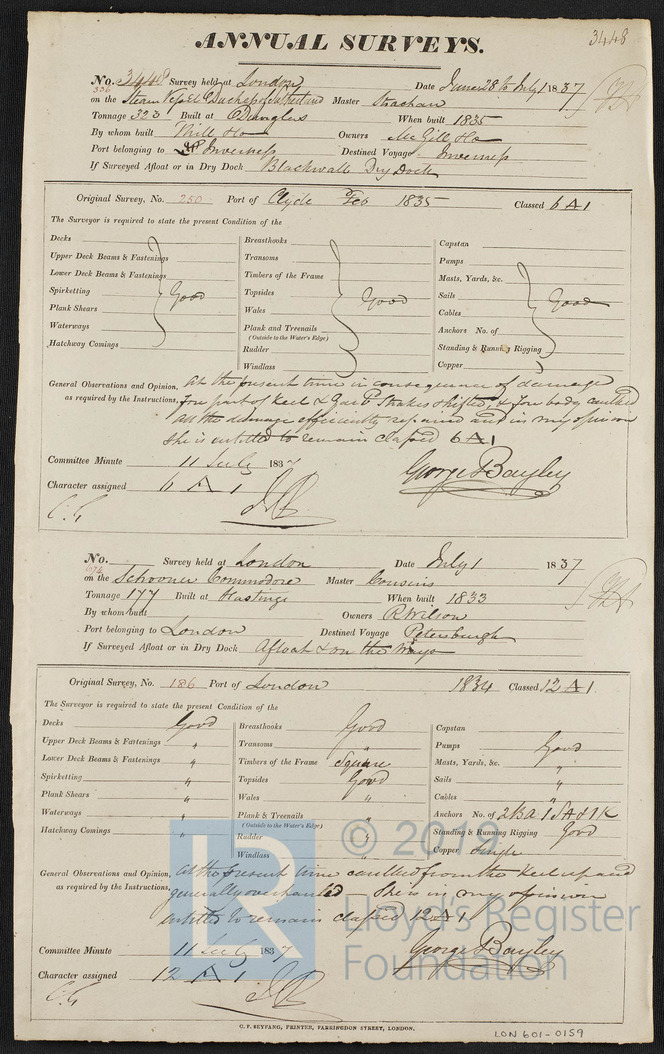 ANNUAL SURVEYS.
3448
No. 3448 Survey held at London Date June 28 to July 1 1837
336
on the Steam Vessel Duchess of Sutherland Master Strachan
Tonnage 323 Built at Douglas When built 1835
By whom built Owners McGill &Co
Port belonging to Inverness Destined Voyage Inverness
If Surveyed Afloat or in Dry Dock Blackwall Dry Dock
Original Survey, No. 250 Port of Clyde Feb 1835 Classed 6 A 1
The Surveyor is required to state the present Condition of the
Decks
Upper Deck Beams & Fastenings
Lower Deck Beams & Fastenings
Spirketting
Plank Shears
Waterways
Hatchway Comings
Good
Breasthooks
Transoms
Timbers of the Frame
Topsides
Wales
Plank and Treenails
(Outside to the Water's Edge)
Rudder
Windlass
Good
Capstan
Pumps
Masts, Yards, &c.
Sails
Cables
Anchors No. of
Standing & Running Rigging
Copper
Good
General Observations and Opinion, At the present time in consequence of damage
as required by the Instructions, fore part of keel & Garbd Strakes shifted, & fore body caulked
all the damage efficiently repaired and in my opinion
she is entitled to remain classed 6 A 1
Committee Minute 11 July 1837
George Bayley
Character assigned 6 A 1
No. Survey held at London Date July 1 1837
676
on the Schooner Commodore Master Cousins
Tonnage 177 Built at Hastings When built 1833
By whom built Owners R Wilson
Port belonging to London Destined Voyage Petersburgh
If Surveyed Afloat or in Dry Dock Afloat & on the Ways
Original Survey, No. 186 Port of London 1834 Classed 12 A 1
The Surveyor is required to state the present Condition of the
Decks Good
Upper Deck Beams & Fastenings "
Lower Deck Beams & Fastenings "
Spirketting "
Plank Shears "
Waterways "
Hatchway Comings "
Breasthooks Good
Transoms "
Timbers of the Frame Square
Topsides Good
Wales "
Plank & Treenails "
(Outside to the Water's Edge)
Rudder "
Windlass "
Capstan
Pumps Good
Masts, Yards, &c. "
Sails "
Cables "
Anchors No. of 2 BA 1 SA & 1 K
Standing & Running Rigging Good
Copper Single
General Observations and Opinion, At the present time caulked from the keel up and
as required by the Instructions, generally overhauled — She is in my opinion
entitled to remain classed 12 A 1
Committee Minute 11 July 1837
George Bayley
Character assigned 12 A 1
C. F. SEYFANG, PRINTER, FARRINGDON STREET, LONDON.
LON 601-0159
LR
© 2019
Lloyd's Register
Foundation